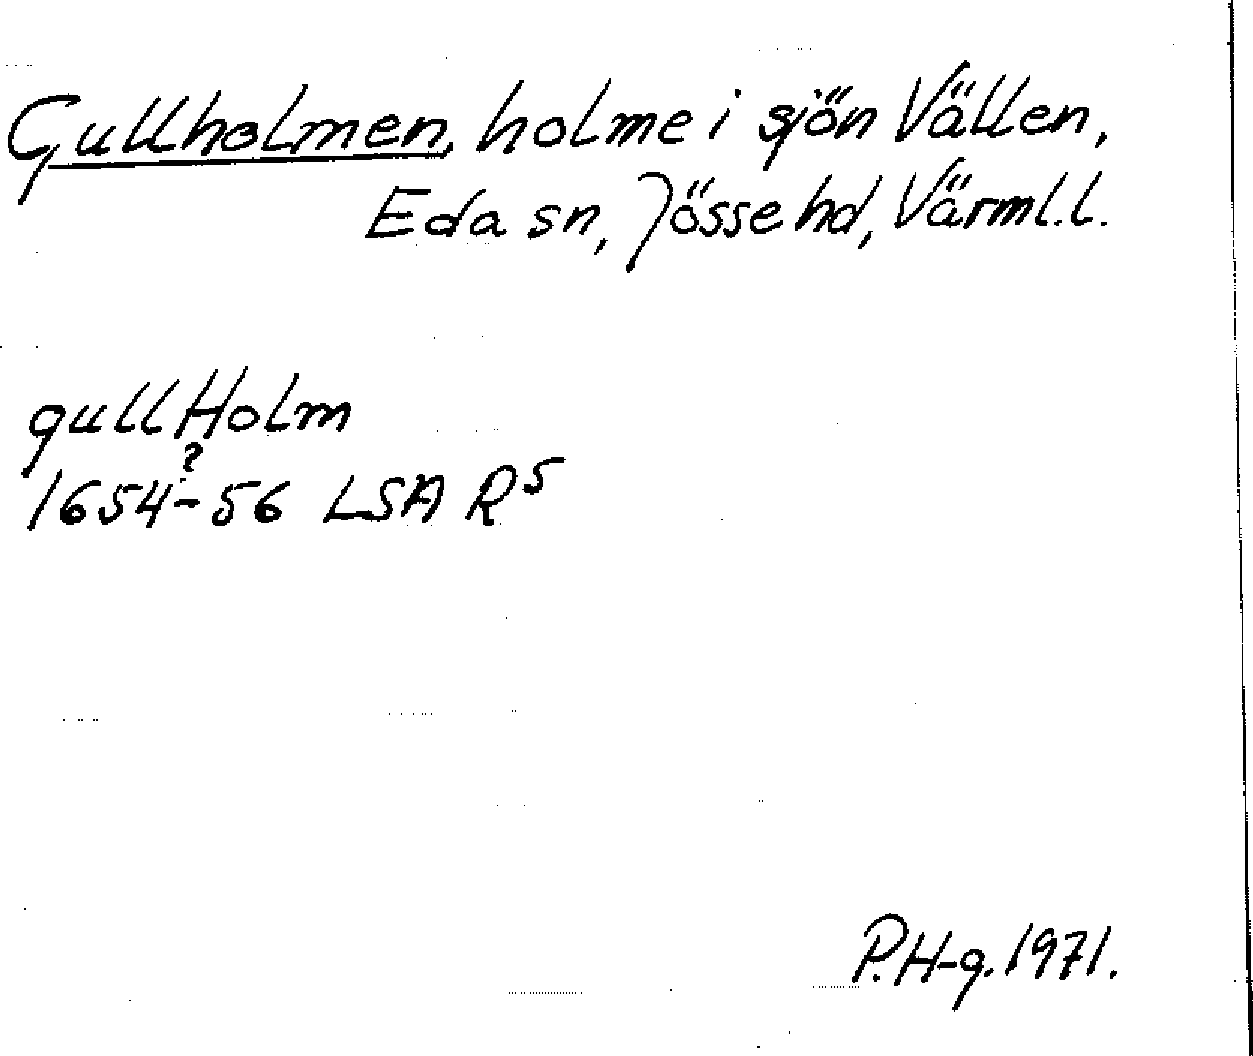 Gullholmen, holme i sjön Vällen,
Eda sn, Jösse hd, Värml.l.
gull Holm
1654?-56 LSA R5
P.H-g. 1971.